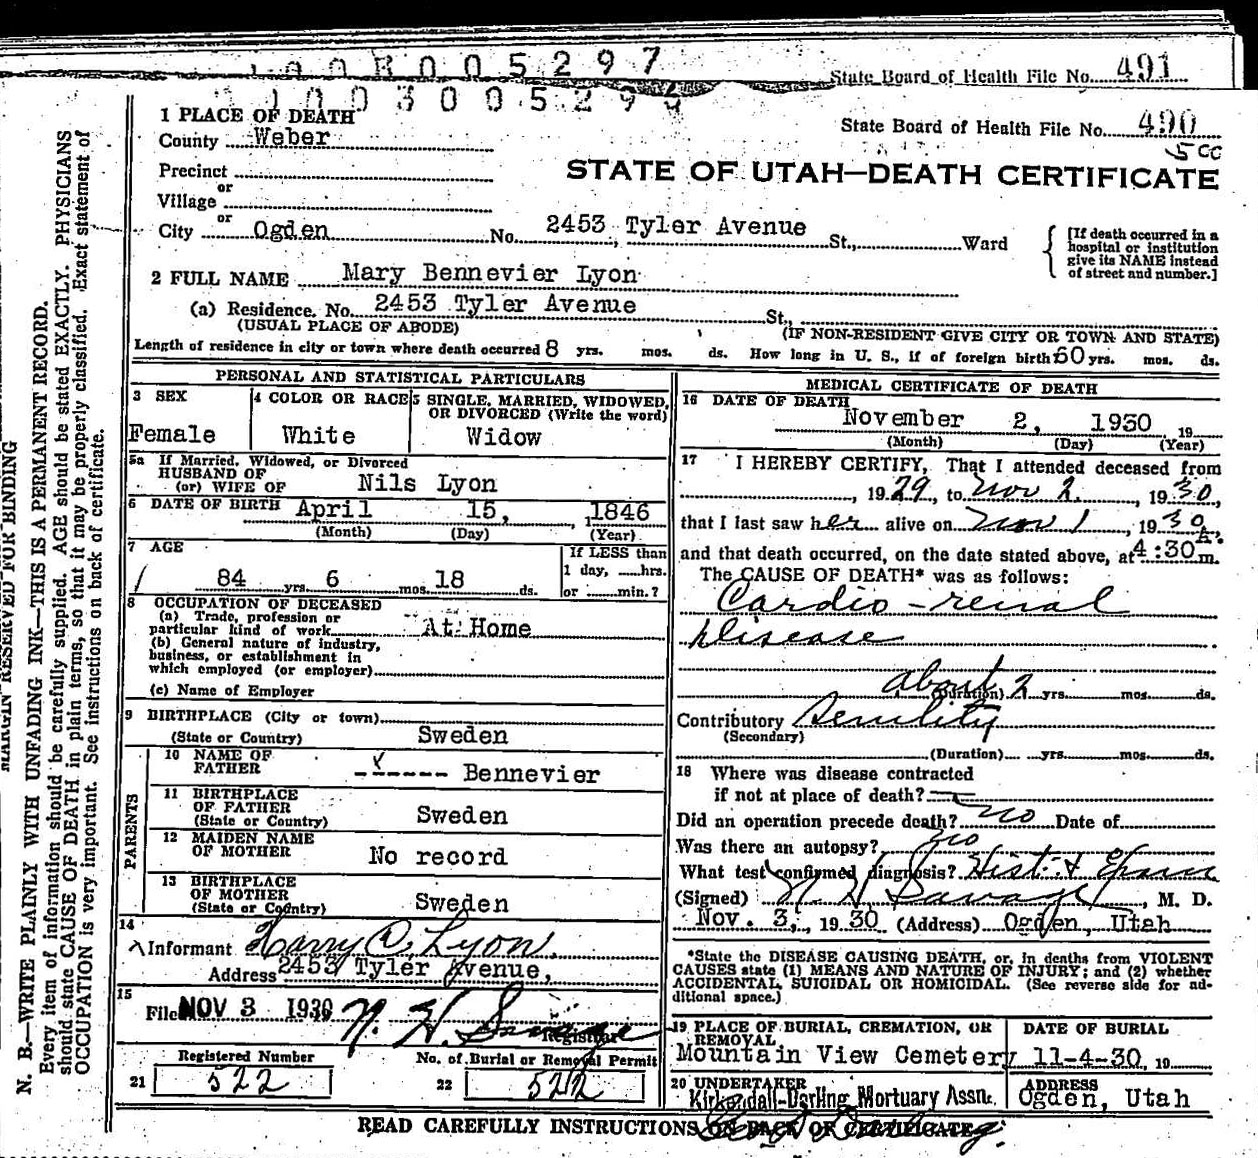 1 0 0 B 0 0 5 2 9 7
State Board of Health File No. 491
1 0 0 3 0 0 5 2 9
State Board of Health File No. 490
5 cc
1 PLACE OF DEATH
County Weber
STATE OF UTAH—DEATH CERTIFICATE
Precinct
or
Village
or
City Ogden No. 2453 Tyler Avenue St., Ward
[If death occurred in a hospital or institution give its NAME instead of street and number.]
2 FULL NAME Mary Bennevier Lyon
(a) Residence. No. 2453 Tyler Avenue St.,
(USUAL PLACE OF ABODE) (IF NON-RESIDENT GIVE CITY OR TOWN AND STATE)
Length of residence in city or town where death occurred 8 yrs. mos. ds. How long in U. S., if of foreign birth? 60 yrs. mos. ds.
PERSONAL AND STATISTICAL PARTICULARS
3 SEX
Female
4 COLOR OR RACE
White
5 SINGLE, MARRIED, WIDOWED, OR DIVORCED (Write the word)
Widow
5a If Married, Widowed, or Divorced
HUSBAND OF
(or) WIFE OF Nils Lyon
6 DATE OF BIRTH April 15, 1846
(Month) (Day) (Year)
7 AGE
84 yrs. 6 mos. 18 ds.
If LESS than
1 day, hrs.
or min.?
8 OCCUPATION OF DECEASED
(a) Trade, profession or
particular kind of work At Home
(b) General nature of industry,
business, or establishment in
which employed (or employer)
(c) Name of Employer
9 BIRTHPLACE (City or town)
(State or Country) Sweden
PARENTS
10 NAME OF
FATHER ------ Bennevier
11 BIRTHPLACE
OF FATHER
(State or Country) Sweden
12 MAIDEN NAME
OF MOTHER No record
13 BIRTHPLACE
OF MOTHER
(State or Country) Sweden
14
Informant Harry C. Lyon.
Address 2453 Tyler Avenue,
15
Filed NOV 3 1930 N. H. Savage
Registrar
Registered Number
21 522
No. of Burial or Removal Permit
22 522
MEDICAL CERTIFICATE OF DEATH
16 DATE OF DEATH
November 2, 1930 19
(Month) (Day) (Year)
17 I HEREBY CERTIFY, That I attended deceased from
, 1929, to Nov 2, 1930,
that I last saw her alive on Nov 1, 1930,
and that death occurred, on the date stated above, at 4:30 A. m.
The CAUSE OF DEATH* was as follows:
Cardio-renal
Disease
about (Duration) 2 yrs. mos. ds.
Contributory Senility
(Secondary)
(Duration) yrs. mos. ds.
18 Where was disease contracted
if not at place of death?
Did an operation precede death? no Date of
Was there an autopsy? no
What test confirmed diagnosis? Hist. &
(Signed) N H Savage, M. D.
Nov. 3, 1930 (Address) Ogden, Utah
*State the DISEASE CAUSING DEATH, or, in deaths from VIOLENT
CAUSES state (1) MEANS AND NATURE OF INJURY; and (2) whether
ACCIDENTAL, SUICIDAL OR HOMICIDAL. (See reverse side for ad-
ditional space.)
19 PLACE OF BURIAL, CREMATION, OR
REMOVAL
Mountain View Cemetery
DATE OF BURIAL
11-4-30, 19
20 UNDERTAKER
Kirkendall-Darling Mortuary Assn.
ADDRESS
Ogden, Utah
READ CAREFULLY INSTRUCTIONS ON BACK OF CERTIFICATE.
MARGIN RESERVED FOR BINDING
N. B.—WRITE PLAINLY WITH UNFADING INK—THIS IS A PERMANENT RECORD.
Every item of information should be carefully supplied. AGE should be stated EXACTLY. PHYSICIANS
should state CAUSE OF DEATH in plain terms, so that it may be properly classified. Exact statement of
OCCUPATION is very important. See instructions on back of certificate.